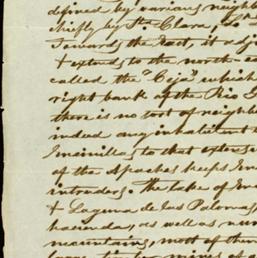 defined by various neighb
chiefly by Sta. Clara, Sa
towards the East, it adj
& extends to the north-ea
called the "Ceja" which
right bank of the Rio G
there is no sort of neighb
indeed any inhabitant
Encinillas to that extens
of the Apaches keeps
intruders. The lake of
& Laguna de las Palomas
hacienda, as well as
mountains, most of them